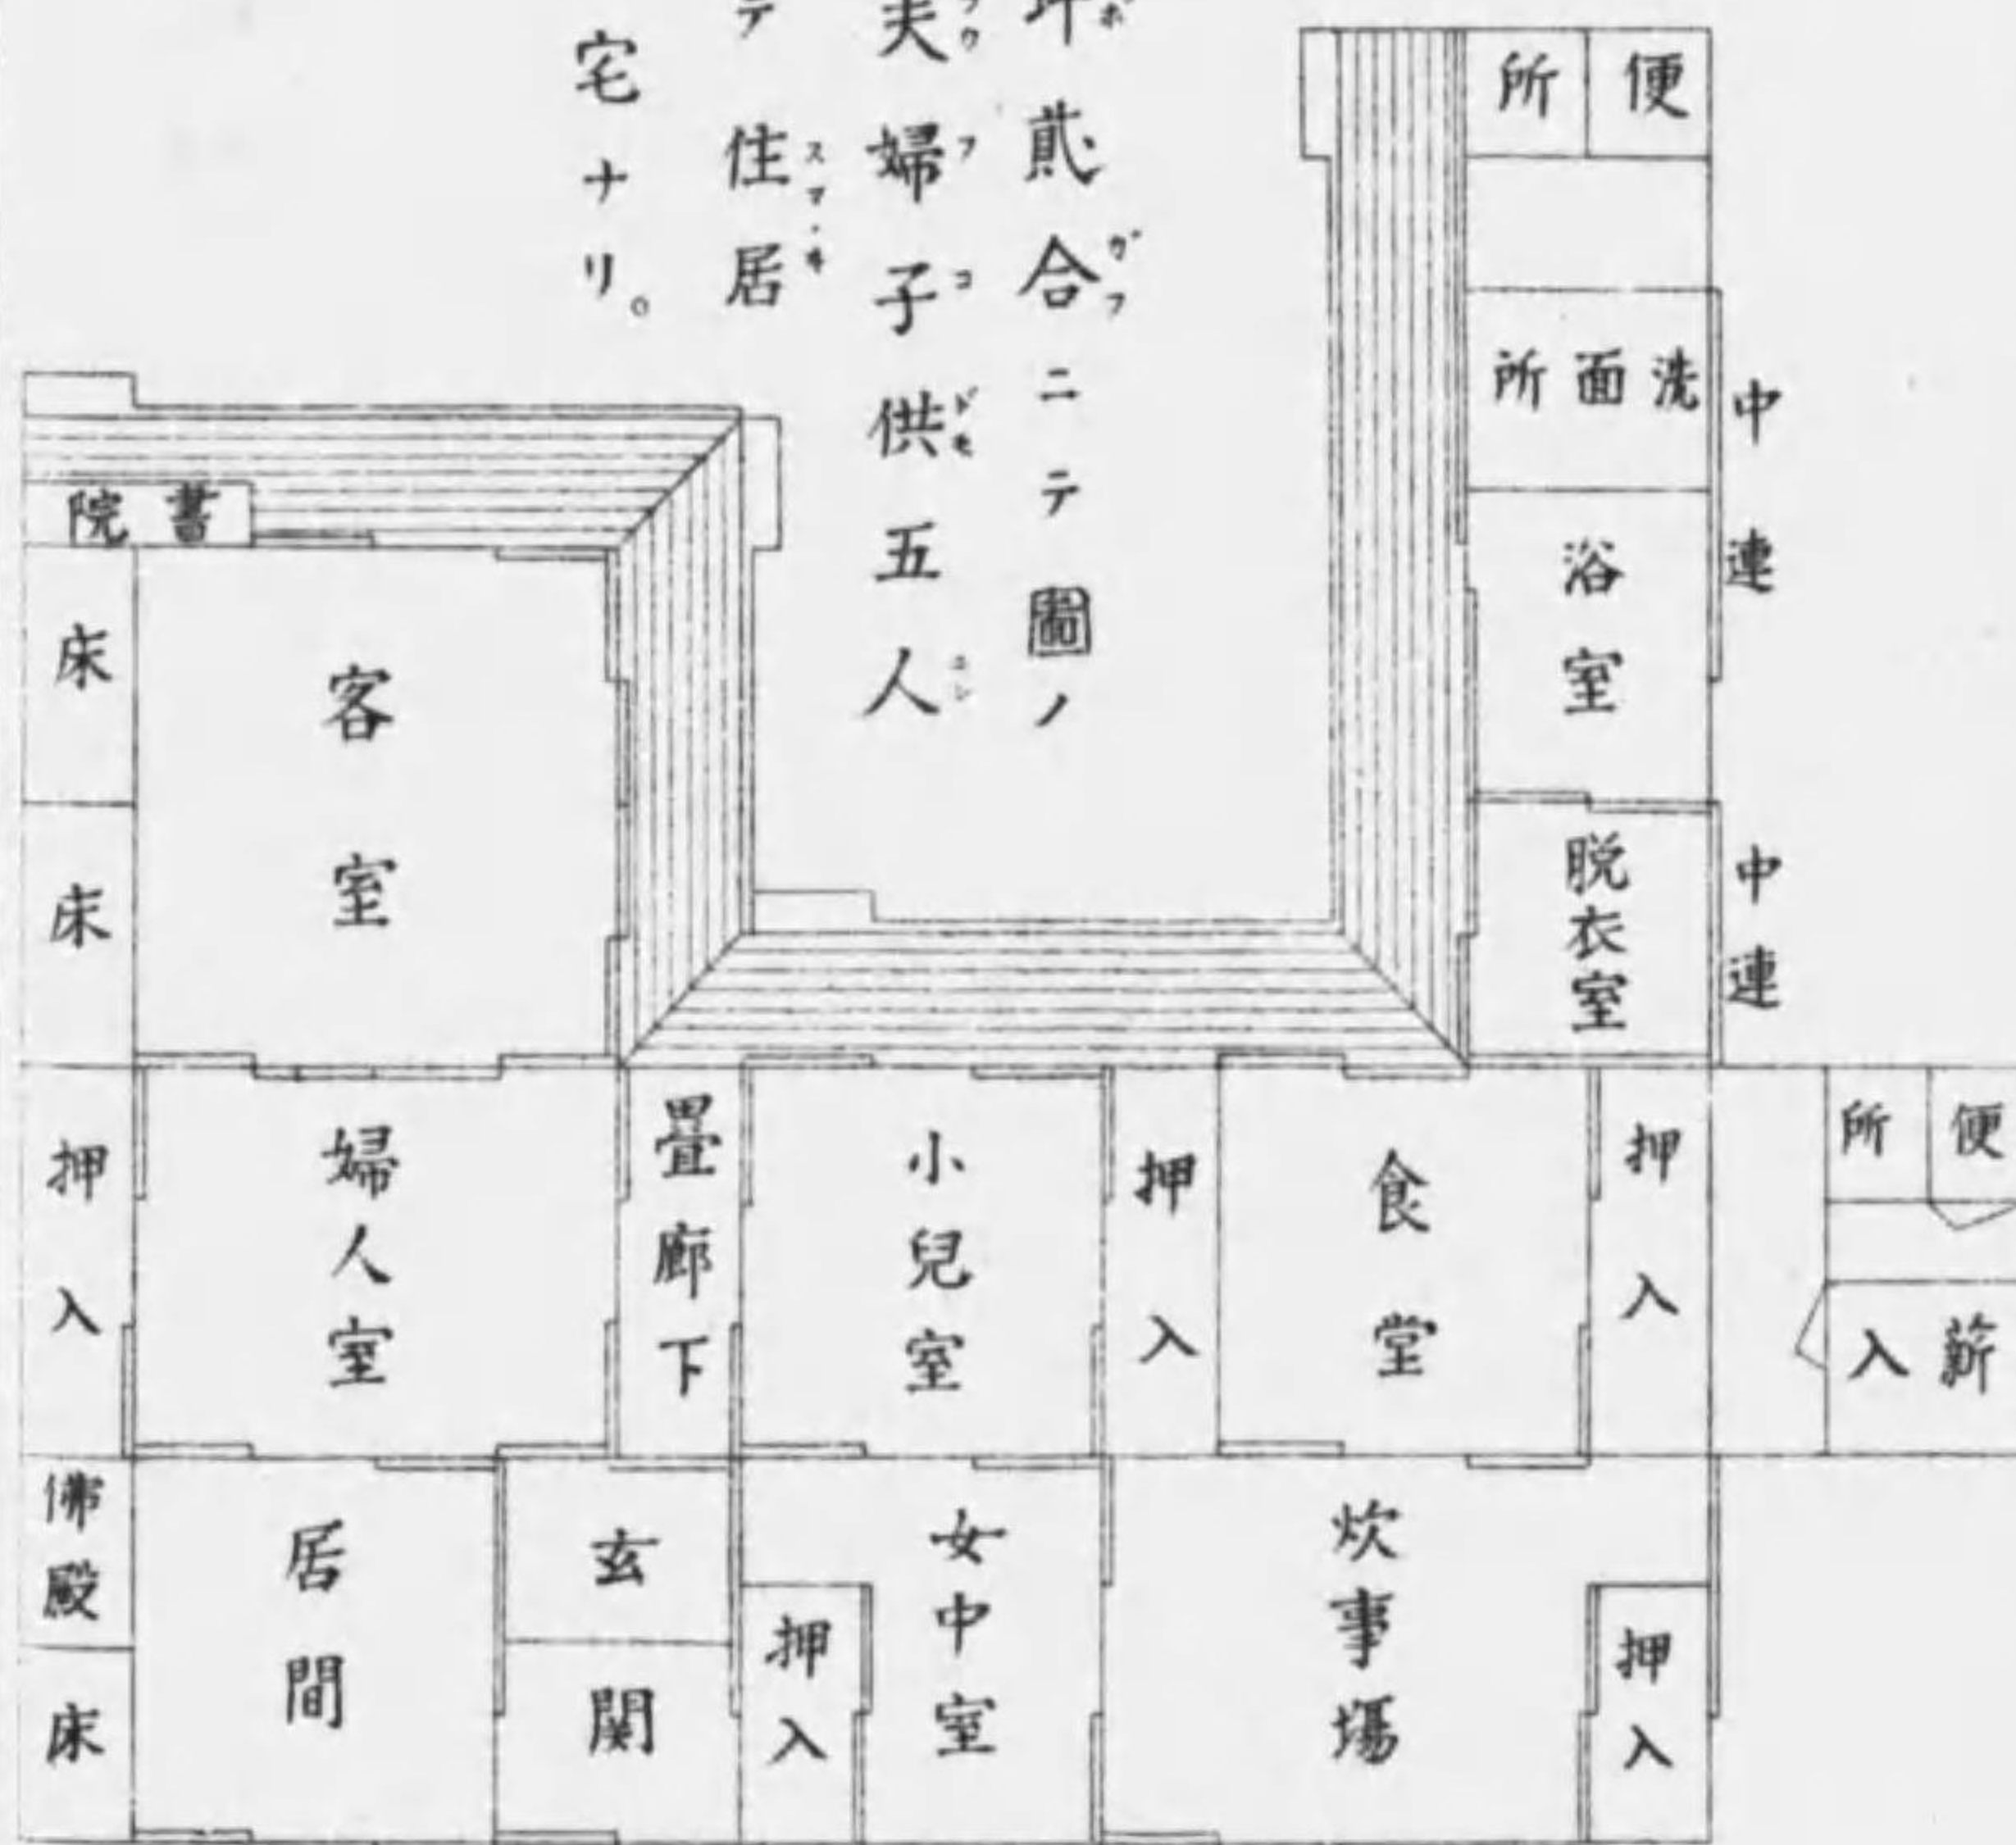 貳合ニテ圖ノ
夫婦子供五人
テ住居
宅ナリ。
便所
洗面所
中連
浴室
脱衣室
中連
書院
床
客室
床
押入
婦人室
畳廊下
小兒室
押入
食堂
押入
便所
薪入
佛殿
居間
床
玄関
押入
女中室
炊事場
押入